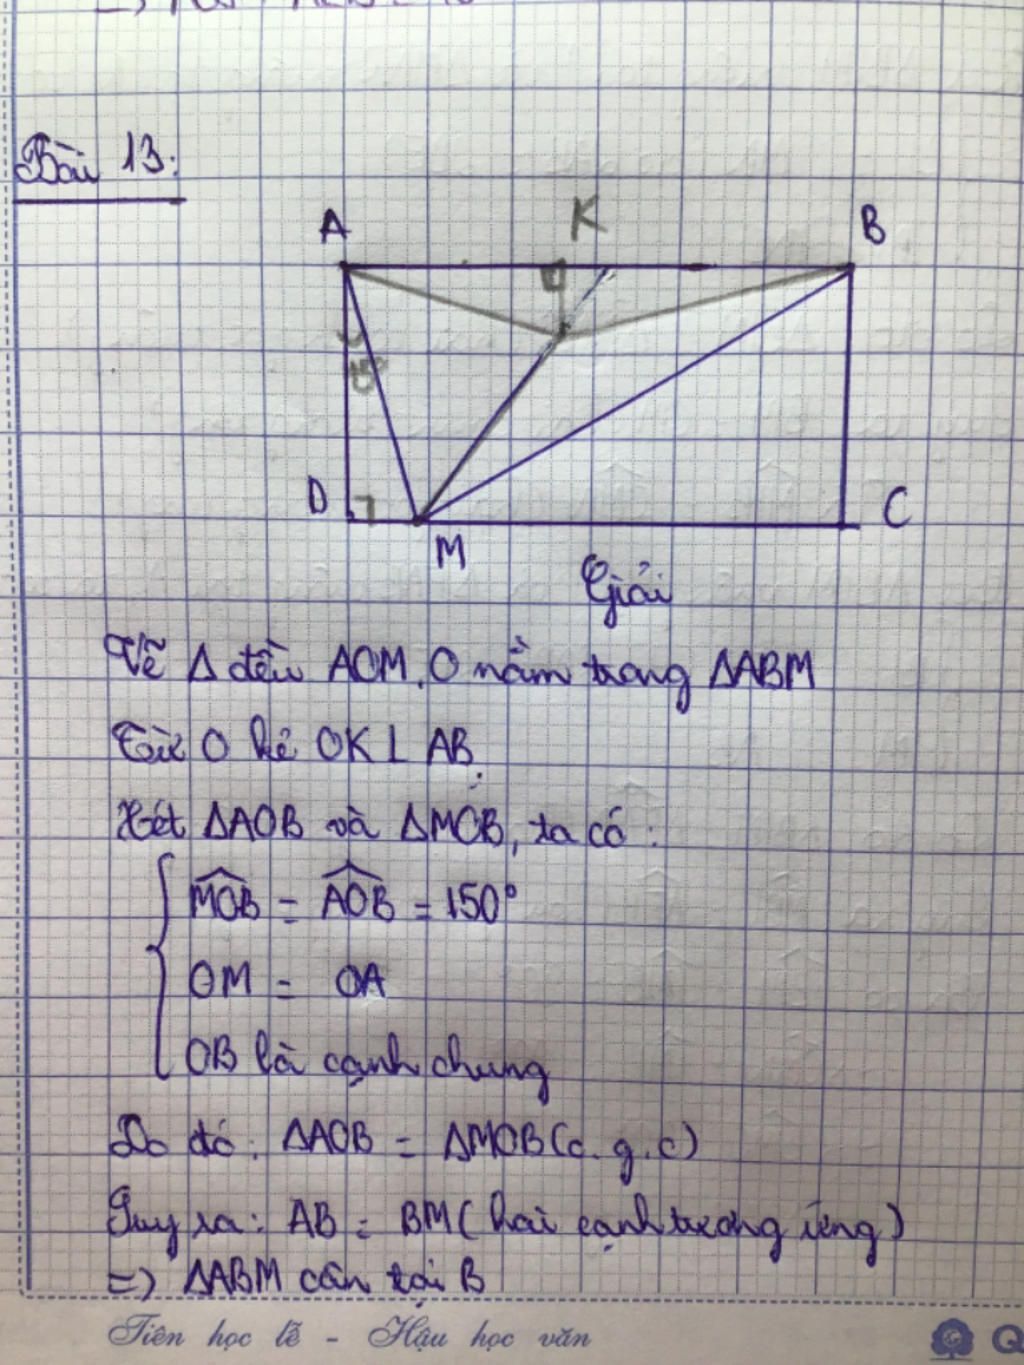 Bài 13:
A K B
15°
D M C
Giải
Vẽ Δ đều AOM, O nằm trong ΔABM
Từ O kẻ OK ⊥ AB
Xét ΔAOB và ΔMOB, ta có:
MOB = AOB = 150°
OM = OA
OB là cạnh chung
Do đó: ΔAOB = ΔMOB (c.g.c)
Suy ra: AB = BM (hai cạnh tương ứng)
=> ΔABM cân tại B
Tiên học lễ - Hậu học văn
Q